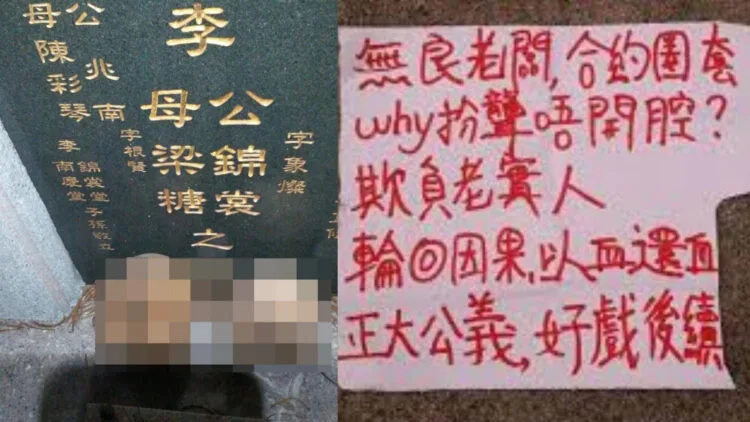 李
字象燦
公錦裳
母梁糖
之
字根賢
公兆南
母陳彩琴
錦裳堂子孫敬立
李南慶堂
無良老闆,合約圈套
why扮聾唔開腔?
欺負老實人
輪回因果,以血還血
正大公義,好戲後續